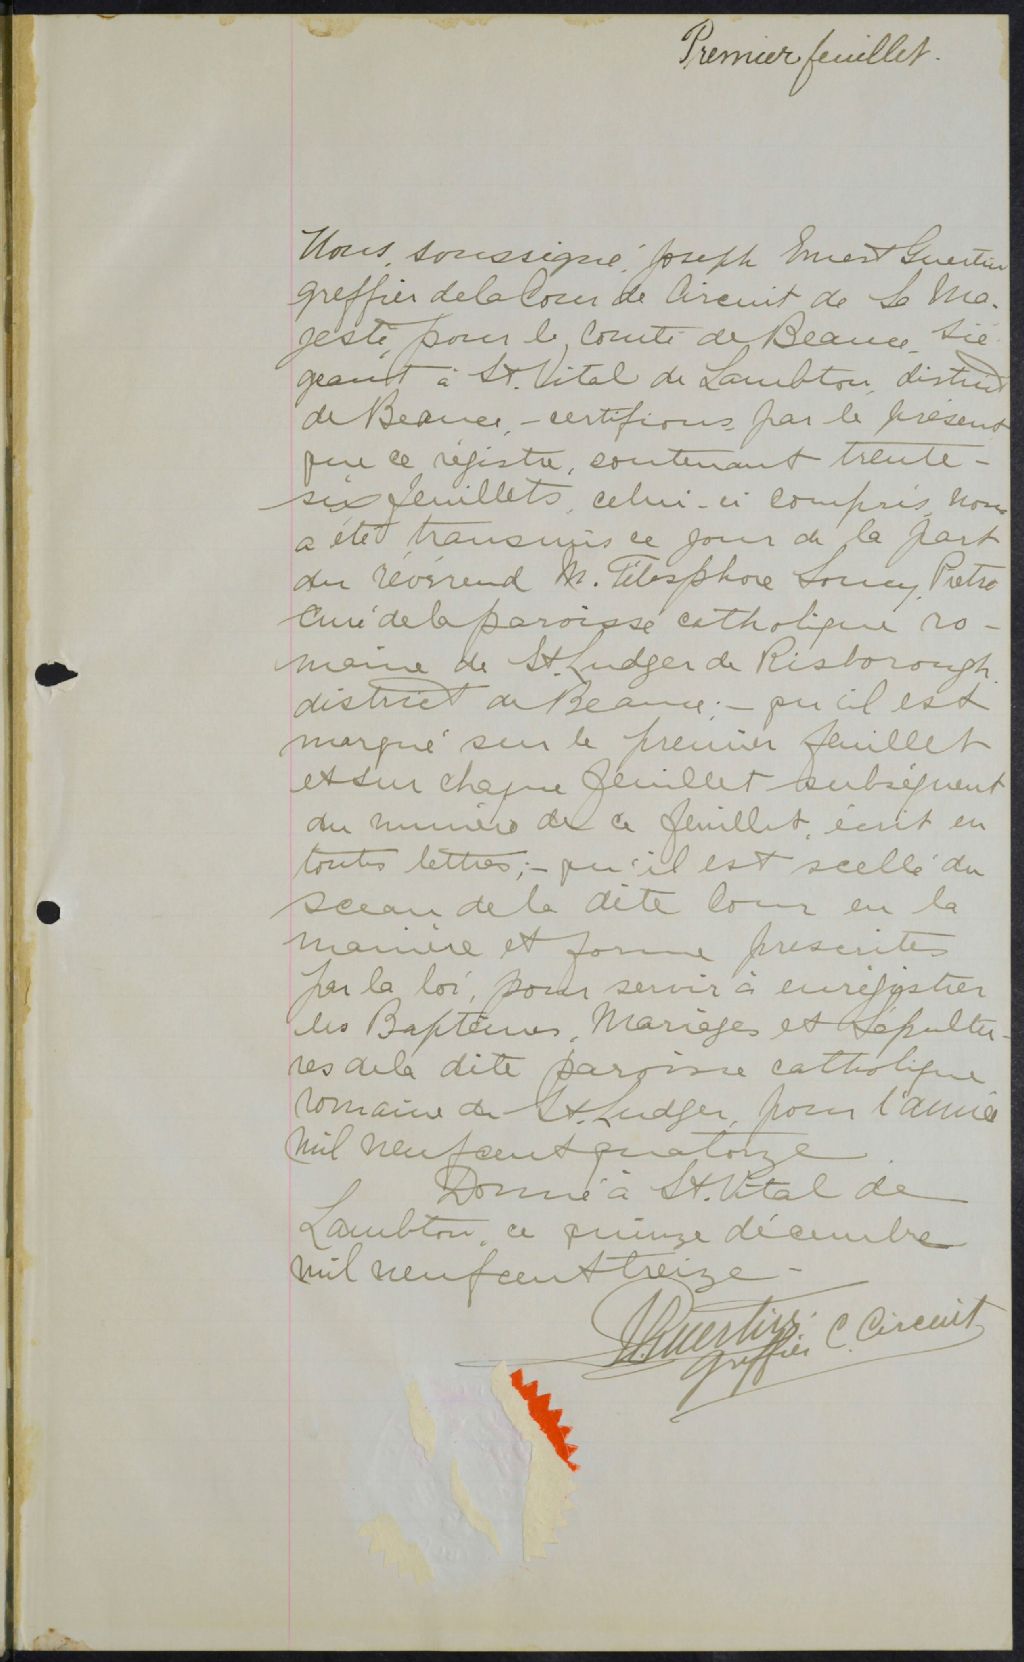 Premier feuillet.
Nous, soussigné, Joseph Ernest Guertin
greffier de la Cour de Circuit de Sa Ma-
jesté, pour le comté de Beauce, sié-
geant à St. Vital de Lambton, district
de Beauce, - certifions par le présent
que ce régistre, contenant trente-
six feuillets, celui-ci compris, nous
a été transmis ce jour de la part
du révérend M. Télesphore Soucy, Prêtre
Curé de la paroisse catholique ro-
maine de St. Ludger de Risborough,
district de Beauce; - qu'il est
marqué sur le premier feuillet
et sur chaque feuillet subséquent
du numéro de ce feuillet, écrit en
toutes lettres; - qu'il est scellé du
sceau de la dite Cour en la
manière et forme prescrites
par la loi, pour servir à enrégistrer
les Baptêmes, Mariages et Sépultu-
res de la dite paroisse catholique
romaine de St. Ludger, pour l'année
mil neuf cent quatorze.
Donné à St. Vital de
Lambton, ce quinze décembre
mil neuf cent treize -
Guertin
greffier C. Circuit